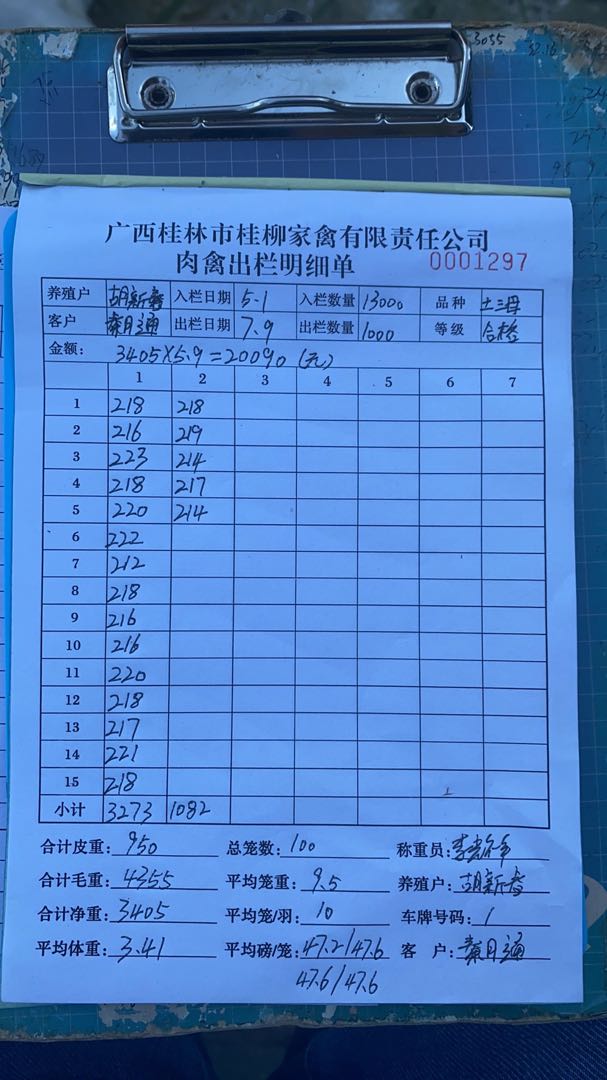 广西桂林市桂柳家禽有限责任公司
肉禽出栏明细单 0001297
养殖户 胡新春 入栏日期 5.1 入栏数量 13000 品种 土三母
客户 秦日通 出栏日期 7.9 出栏数量 1000 等级 合格
金额: 3405×5.9=20090(元)
1 2 3 4 5 6 7
1 218 218
2 216 219
3 223 214
4 218 217
5 220 214
6 222
7 212
8 218
9 216
10 216
11 220
12 218
13 217
14 221
15 218
小计 3273 1082
合计皮重: 950 总笼数: 100 称重员:
合计毛重: 4355 平均笼重: 9.5 养殖户: 胡新春
合计净重: 3405 平均笼/羽: 10 车牌号码: 1
平均体重: 3.41 平均磅/笼: 47.2/47.6 客 户: 秦日通
47.6/47.6